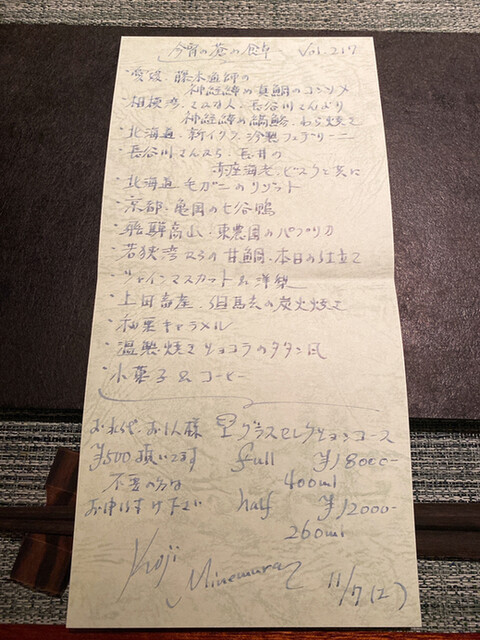 今宵の蒼の食卓 Vol.217
・愛媛、藤本漁師の
神経締め真鯛のコンソメ
・相模湾、さかな人・長谷川さんより
神経締め縞鯵、わら焼きで
・北海道、新イクラ、冷製フェデリーニ
・長谷川さんから、長井の
赤座海老、ビスクと共に
・北海道 毛ガニのリゾット
・京都、亀岡の七谷鴨
・飛騨高山、東農園のパプリカ
・若狭湾からの甘鯛、本日の仕立て
・シャインマスカット&洋梨
・上田畜産、但馬玄の炭火焼きで
・和栗キャラメル
・温製焼きショコラのタタン風
・小菓子&コーヒー
お水代、お1人様
¥500頂いてます
不要の方は
お申し付け下さい
グラスセレクションコース
full ¥18000-
400ml
half ¥12000-
260ml
Koji Minemura
11/7(土)